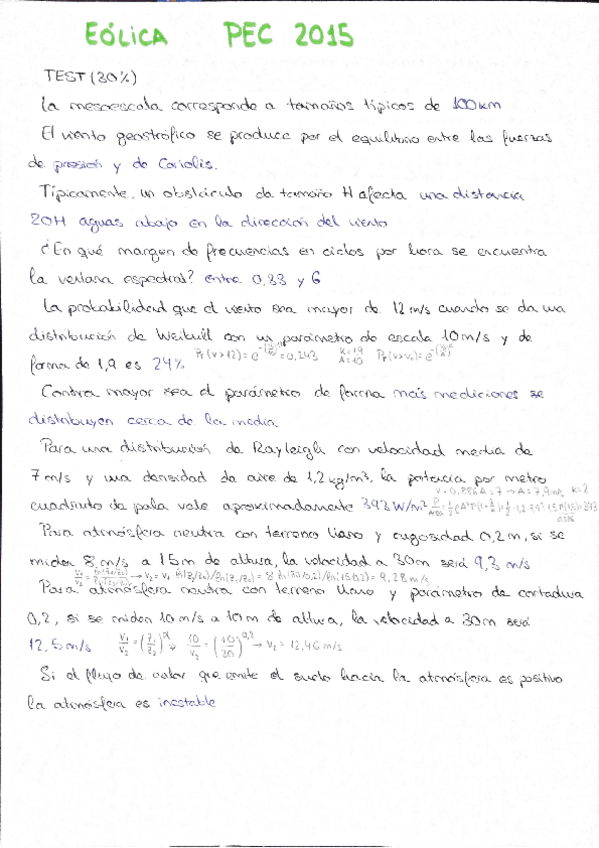 EÓLICA PEC 2015
TEST (30%)
La mesoescala corresponde a tamaños típicos de 100km
El viento geostrófico se produce por el equilibrio entre las fuerzas
de presión y de Coriolis.
Típicamente, un obstáculo de tamaño H afecta una distancia
20H aguas abajo en la dirección del viento
¿En qué margen de frecuencias en ciclos por hora se encuentra
la ventana espectral? entre 0,33 y 6
La probabilidad que el viento sea mayor de 12 m/s cuando se da una
distribución de Weibull con un parámetro de escala 10 m/s y de
forma de 1,9 es 24% Pr(v>12) = e = 0,243 K=1,9 A=10 Pr(v>v₀) = e
Contra mayor sea el parámetro de forma más mediciones se
distribuyen cerca de la media.
Para una distribución de Rayleigh con velocidad media de
7 m/s y una densidad de aire de 1,2 kg/m³, la potencia por metro
v = 0,886A = 7 → A = 7,9 m/s K=2
cuadrado de pala vale aproximadamente 393 W/m²
Para atmósfera neutra con terreno llano y rugosidad 0,2 m, si se
miden 8 m/s a 15m de altura, la velocidad a 30m será 9,3 m/s
→ v₂ = v₁ = 8 ln(30/0,2)/ln(15/0,2) = 9,28 m/s
Para atmósfera neutra con terreno llano y parámetro de cortadura
0,2, si se miden 10 m/s a 10m de altura, la velocidad a 30m será
12,5 m/s v₁/v₂ = (z₁/z₂)^α → 10/v₂ = (10/30)^0,2 → v₂ = 12,46 m/s
Si el flujo de calor que emite el suelo hacia la atmósfera es positivo
la atmósfera es inestable